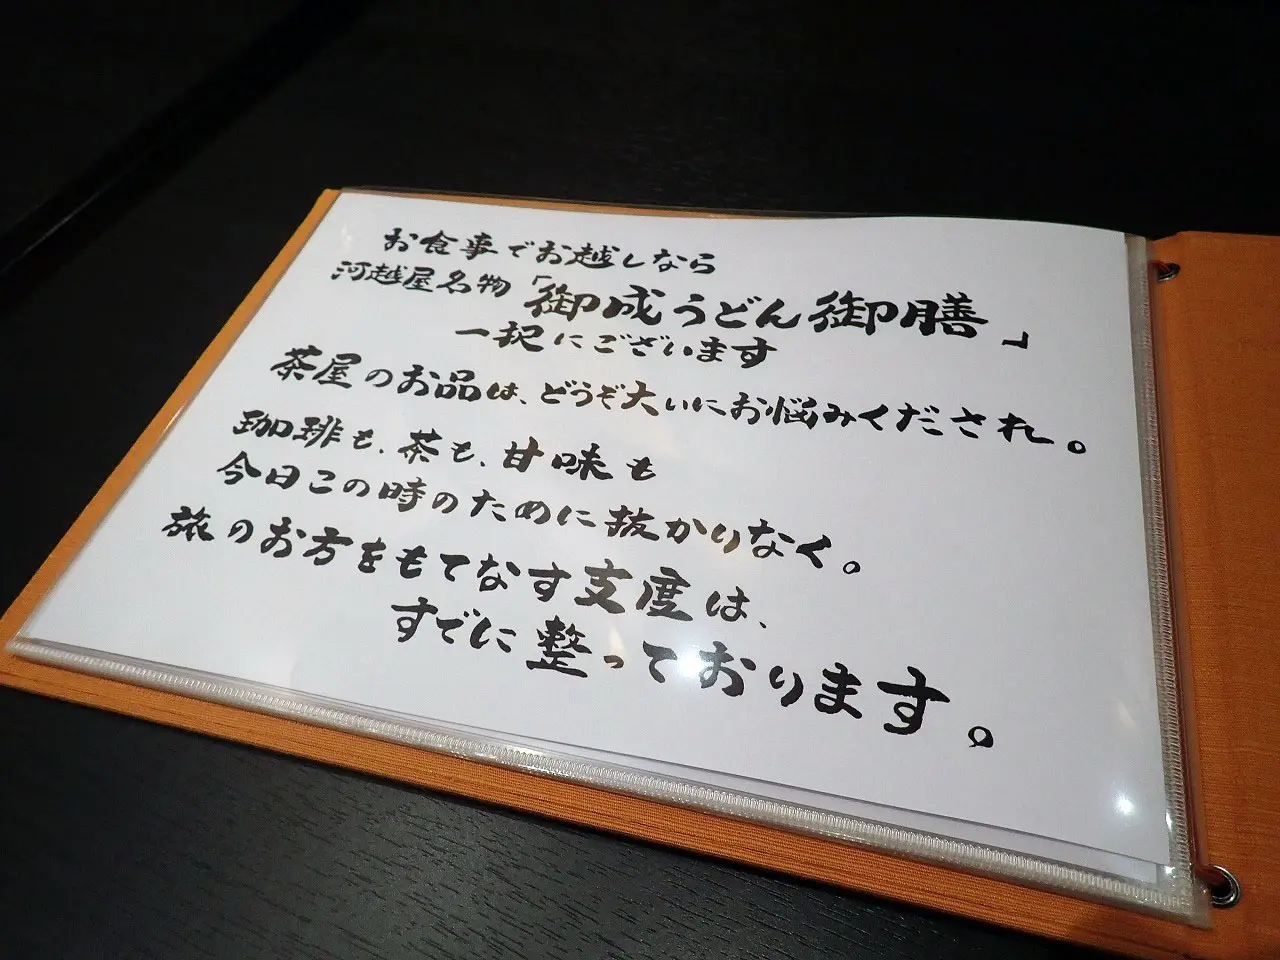 お食事でお越しなら
河越屋名物「御成うどん御膳」
一択にございます
茶屋のお品は、どうぞ大いにお悩みくだされ。
珈琲も、茶も、甘味も
今日この時のために抜かりなく。
旅のお方をもてなす支度は、
すでに整っております。